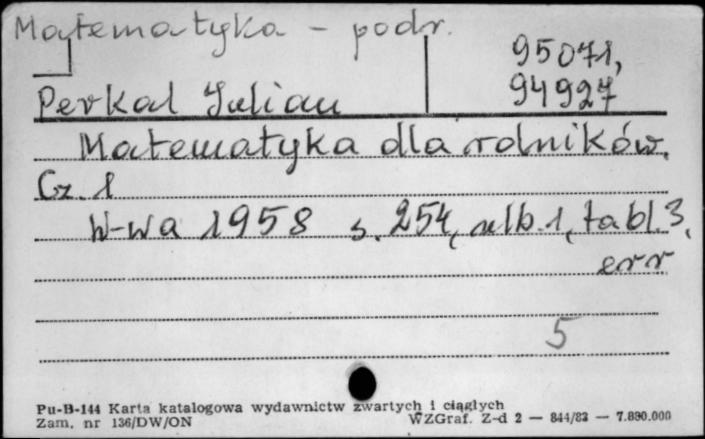 Matematyka - podr.
95071,
94927
Perkal Julian
Matematyka dla rolników.
Cz. 1
W-wa 1958 s. 254, nlb. 1, tabl. 3,
err
5
Pu-B-144 Karta katalogowa wydawnictw zwartych i ciągłych
Zam. nr 136/DW/ON WZGraf. Z-d 2 — 844/83 — 7.890.000